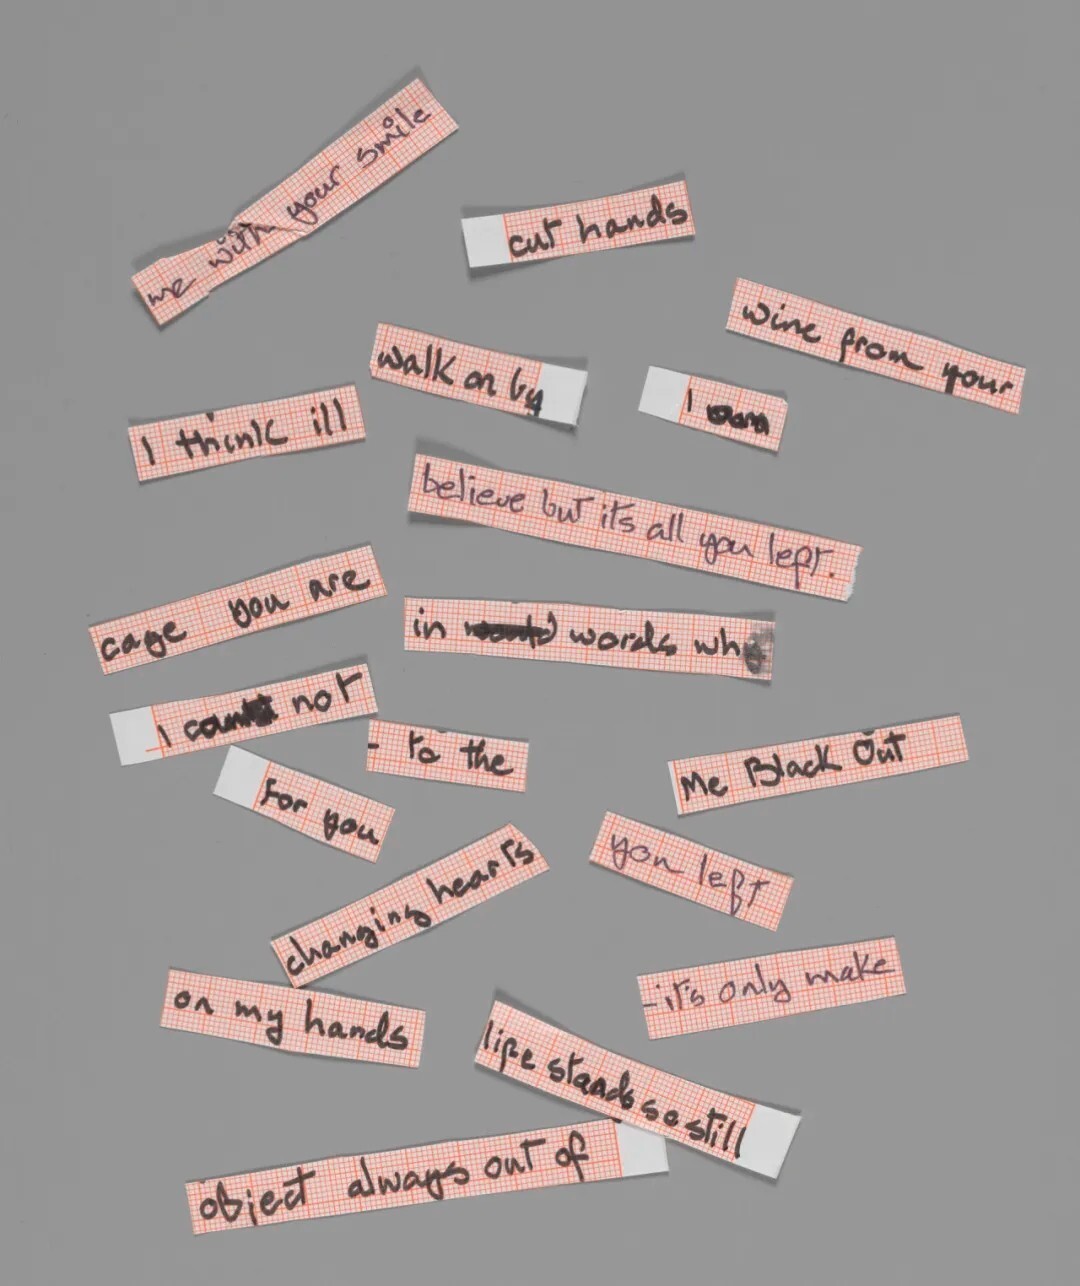 me with your smile
cut hands
wine from your
walk on by
I
I think ill
believe but its all you left.
cage you are
in words wh
I not
- to the
Me Black Out
for you
changing hearts
you left
-it's only make
on my hands
life stands so still
object always out of